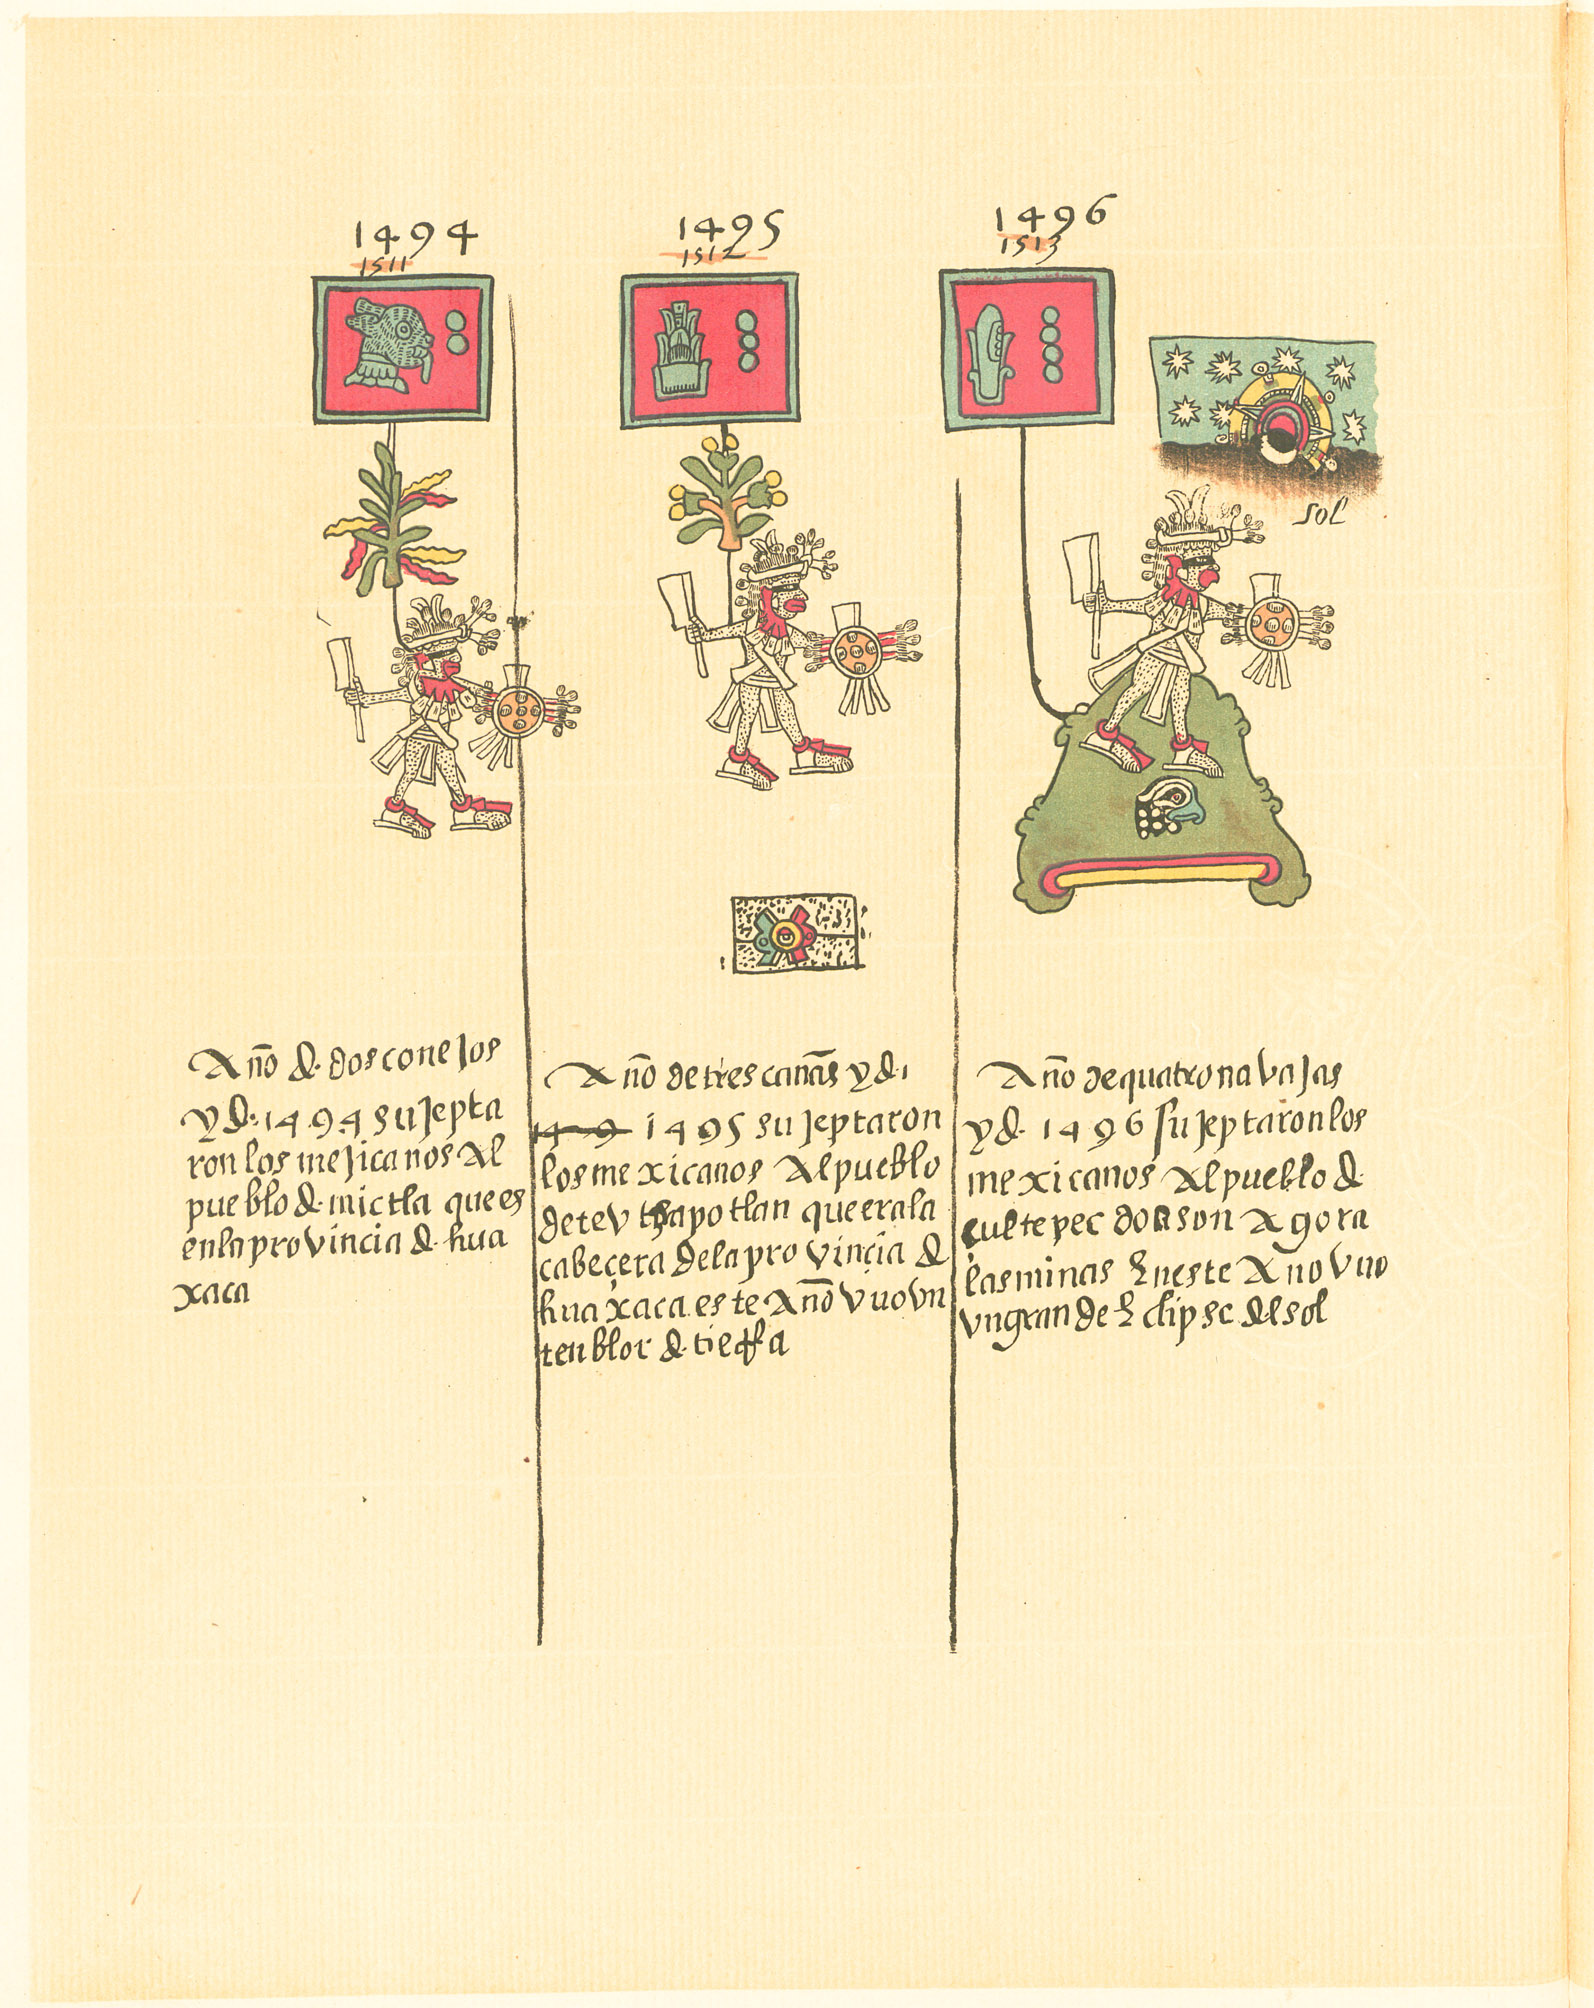 1494
1511
1495
1512
1496
1513
sol
Año d. dos conejos
y d. 1494 sujepta
ron los mejicanos Al
pueblo d. mictla que es
en la provincia d. hua
xaca
Año de tres cañas y d.
1495 sujeptaron
los mexicanos Al pueblo
de teu tzapotlan que era la
cabeçera de la provincia d
huaxaca. este Año vuo vn
tenblor d. tierra
Año de quatro navajas
y d. 1496 sujeptaron los
mexicanos Al pueblo d.
cultepec do son Agora
las minas En este Año vuo
vn grande Eclipse del sol